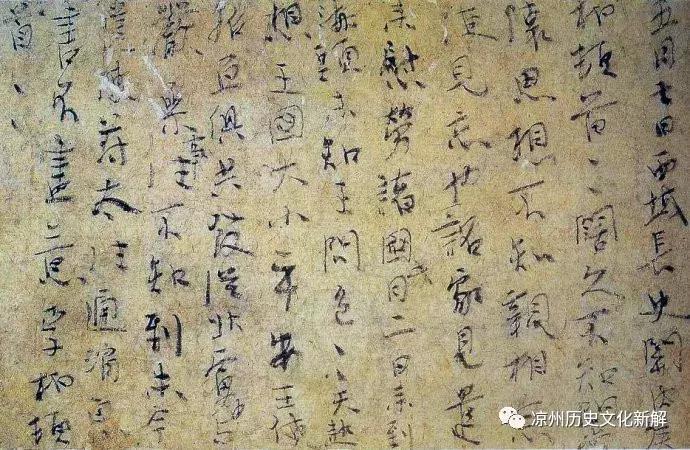 五月七日西域長史關內侯
柏頓首〻闊久不知問
懷思想不知親相念
便見忘也詔家見遣
來慰勞諸國月二日來到
海頭未知王問邑〻天熱
想王國大小平安王使
招亘俱共發從北虜中
嚴參事往不知到未今
使苻太往通消息
書不盡意李柏頓
首〻
凉州历史文化新解